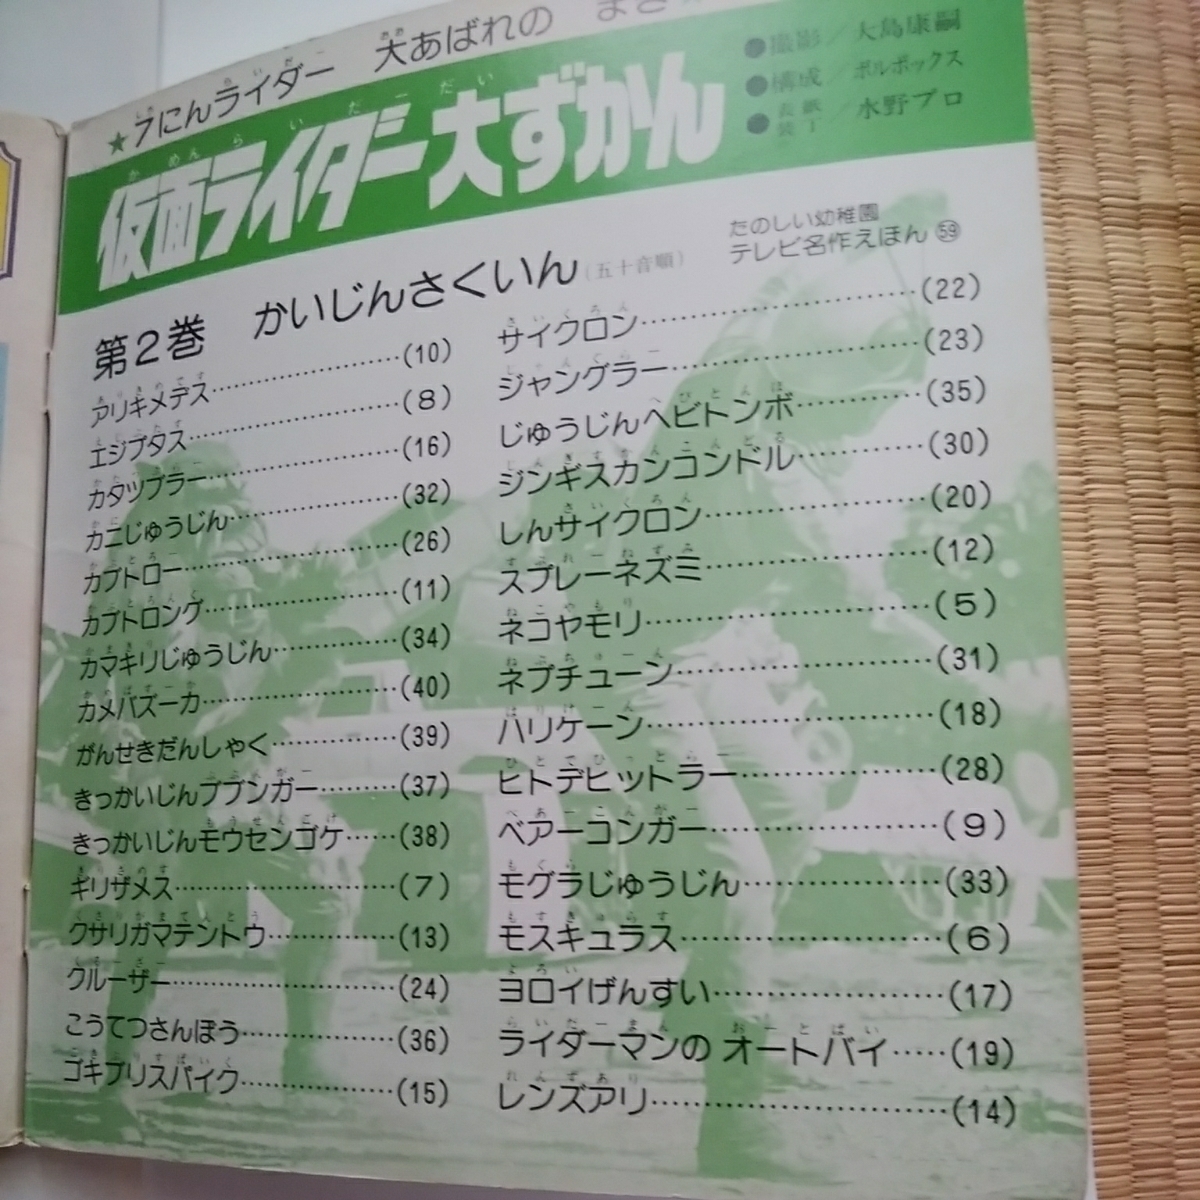 ★7にんライダー 大あばれの まき
仮面ライダー大ずかん
●撮影/大島康嗣
●構成/ボルボックス
●表紙装丁/水野プロ
たのしい幼稚園
テレビ名作えほん59
第2巻 かいじんさくいん(五十音順)
アリキメデス……(10)
エジプタス……(8)
カタツブラー……(16)
カニじゅうじん……(32)
カブトロー……(26)
カブトロング……(11)
カマキリじゅうじん……(34)
カメバズーカ……(40)
がんせきだんしゃく……(39)
きっかいじんブブンガー……(37)
きっかいじんモウセンゴケ……(38)
ギリザメス……(7)
クサリガマテントウ……(13)
クルーザー……(24)
こうてつさんぼう……(36)
ゴキブリスパイク……(15)
サイクロン……(22)
ジャングラー……(23)
じゅうじんヘビトンボ……(35)
ジンギスカンコンドル……(30)
しんサイクロン……(20)
スプレーネズミ……(12)
ネコヤモリ……(5)
ネプチューン……(31)
ハリケーン……(18)
ヒトデヒットラー……(28)
ベアーコンガー……(9)
モグラじゅうじん……(33)
モスキュラス……(6)
ヨロイげんすい……(17)
ライダーマンの オートバイ……(19)
レンズアリ……(14)